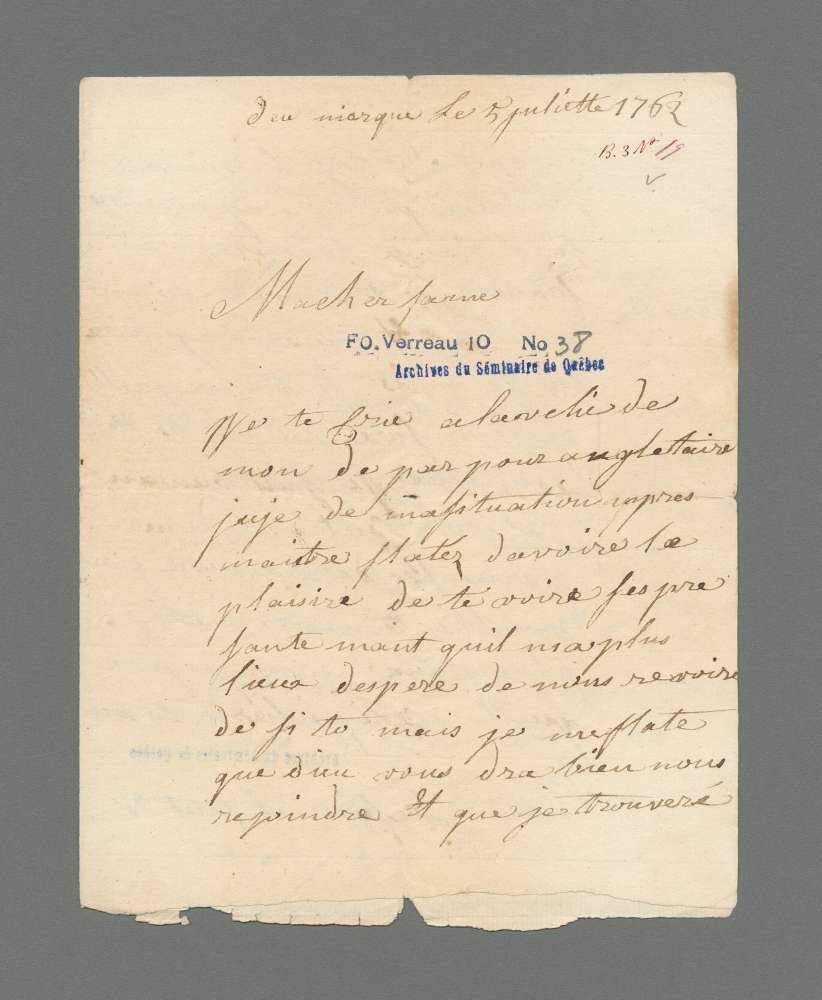 deu miarque Le 5 juliette 1762
B. 3 No 19
Macher famme
FO. Verreau 10 No 38
Archives du Séminaire de Québec
Je te alavelie de
mon de par pour angletaire
juje de masituation apres
maitre flatéz davoire le
plaisire de te voire ses pre
sante mant quil nia plus
lieux despere de nous revoire
de si to mais je me flate
que dieu vous dra bien nous
rejoindre Et que je trouveré